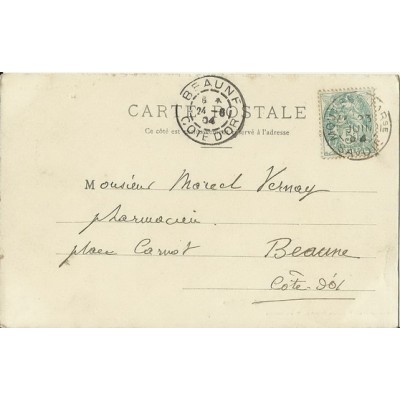 BEAUNE
6
24 - 6
04
COTE D'OR
CARTE POSTALE
Ce côté est réservé à l'adresse
23
JUIN
04
SAVOIE
Monsieur Marcel Vernay
pharmacien
place Carnot
Beaune
Côte d'Or